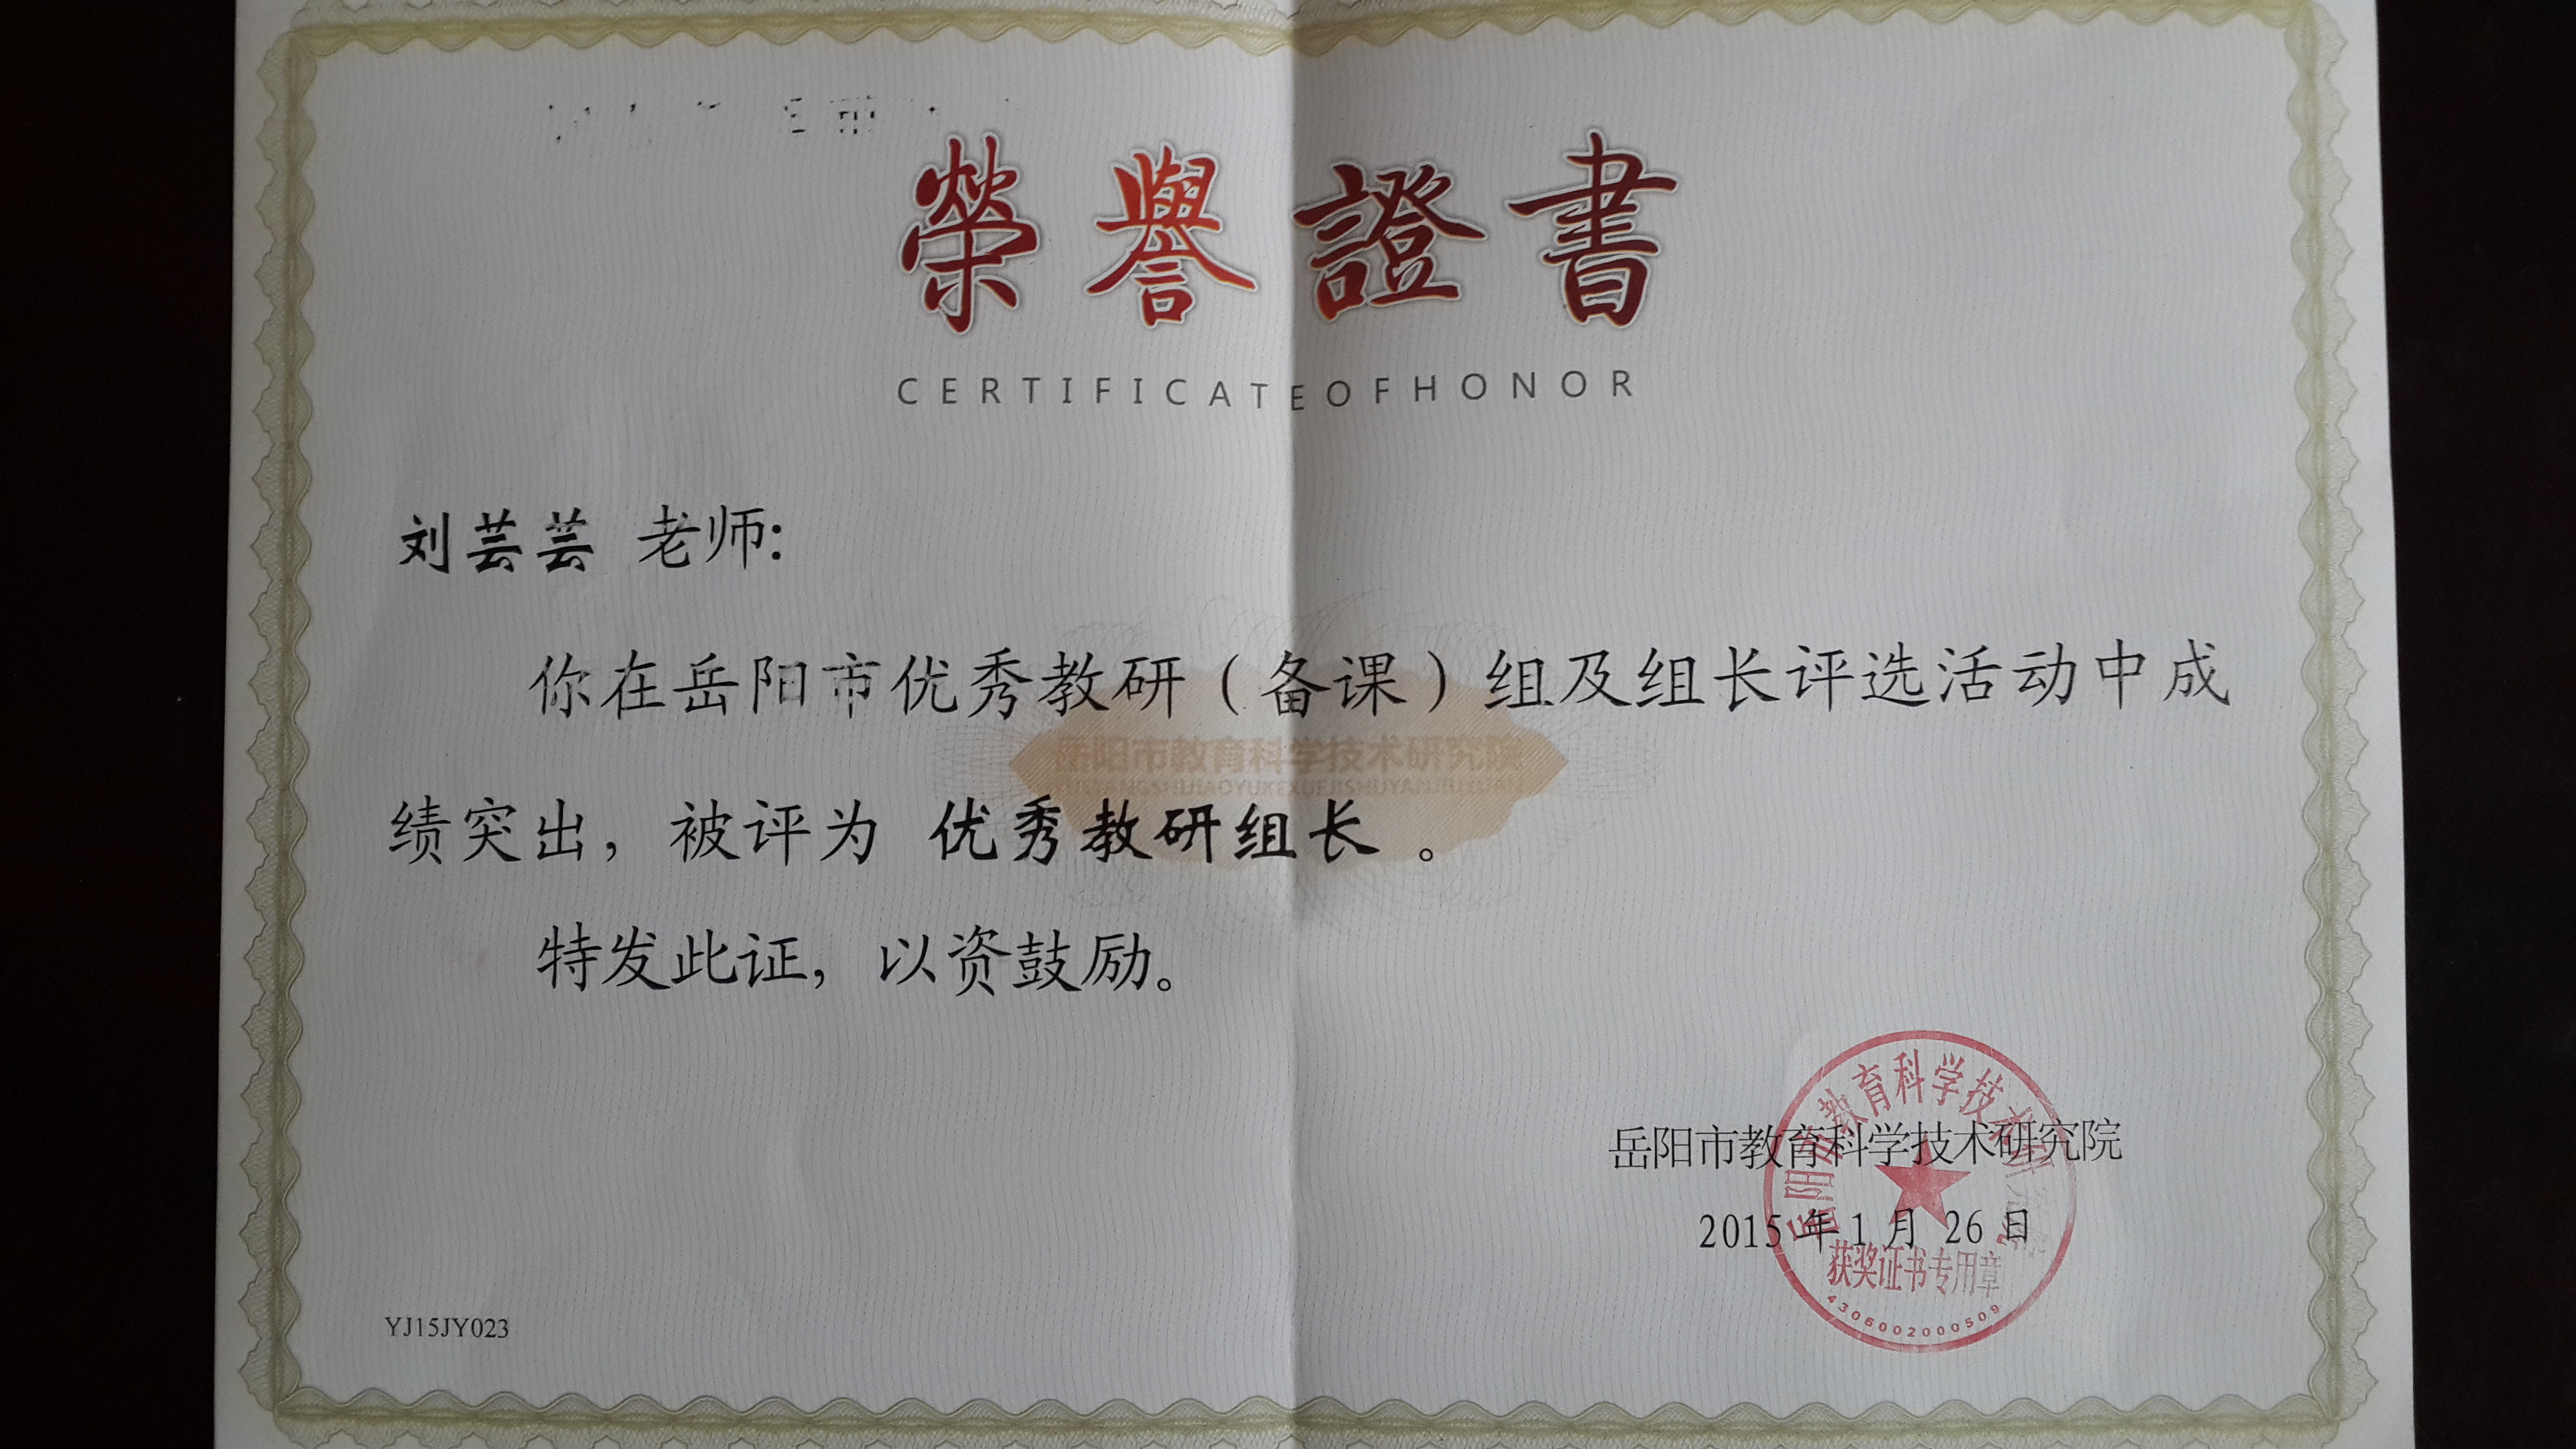 榮譽證書
CERTIFICATEOFHONOR
刘芸芸 老师:
你在岳阳市优秀教研（备课）组及组长评选活动中成
岳阳市教育科学技术研究院
YUEYANGSHIJIAOYUKEXUEJISHUYANJIUYUAN
绩突出，被评为 优秀教研组长 。
特发此证，以资鼓励。
岳阳市教育科学技术研究院
2015 年 1 月 26 日
岳阳市教育科学技术研究院
获奖证书专用章
4306002000509
YJ15JY023